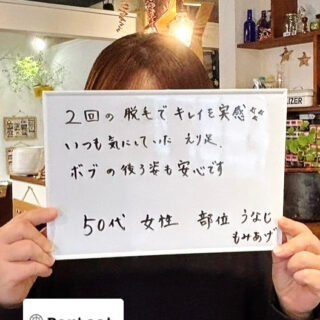 2回の脱毛でキレイを実感
いつも気にしていた えり足、
ボブの後ろ姿も安心です
50代 女性 部位 うなじ
もみあげ